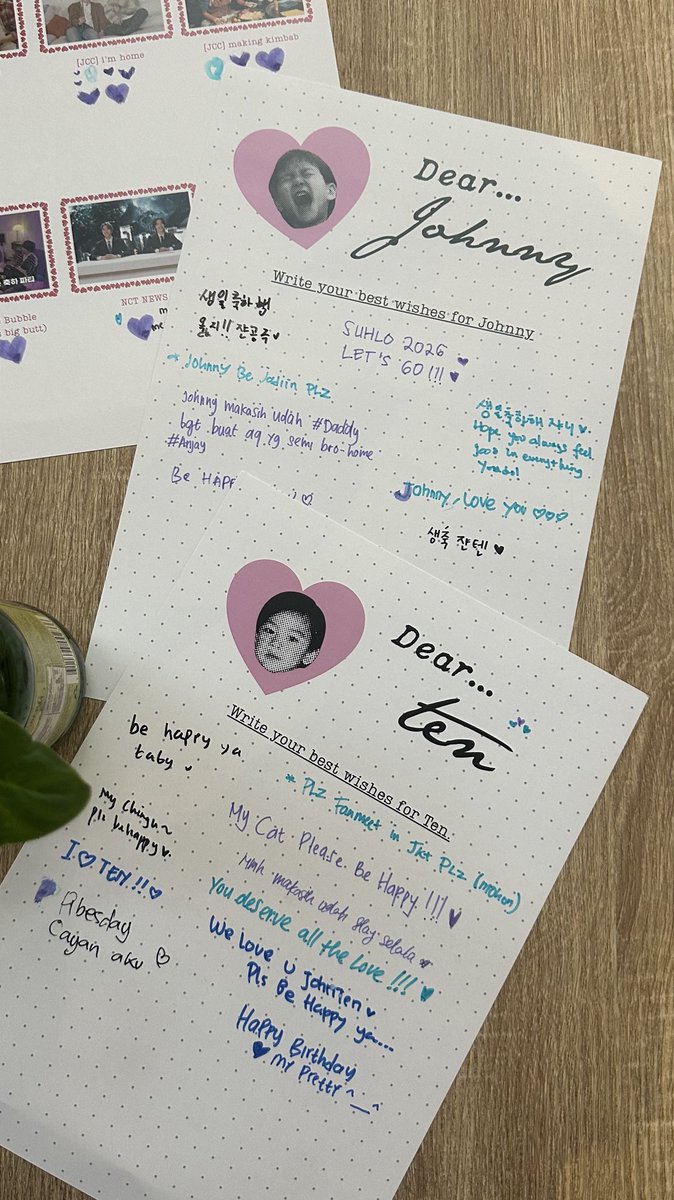 [JCC] i'm home
[JCC] making kimbab
Bubble
big butt)
NCT NEWS
Dear...
Johnny
Write your best wishes for Johnny
생일 축하행
울지!! 쟌공쥬
SUHLO 2026
LET'S GO!!!
* Johnny Be Jadiin PLZ
Johnny makasih udah #Daddy
bgt buat aq yg semi bro-home
#Anjay
생일축하해 쟈니
Hope you always feel
good in everything
you do!
Be HAPP
Johnny, Love you
생축 쟌텐!
Dear...
ten
Write your best wishes for Ten.
be happy ya
taby
* PLZ Fanmeet in Jkt PLZ (mohon)
My Chingu~
pls be happy
My Cat Please Be Happy!!!
I ♡ TEN!!
Mmh makasih udah slay selala
You deserve all the love!!!
Abesday
Cayan aku
We Love U JohnTen
Pls Be Happy ya....
Happy Birthday
My Pretty ^_^